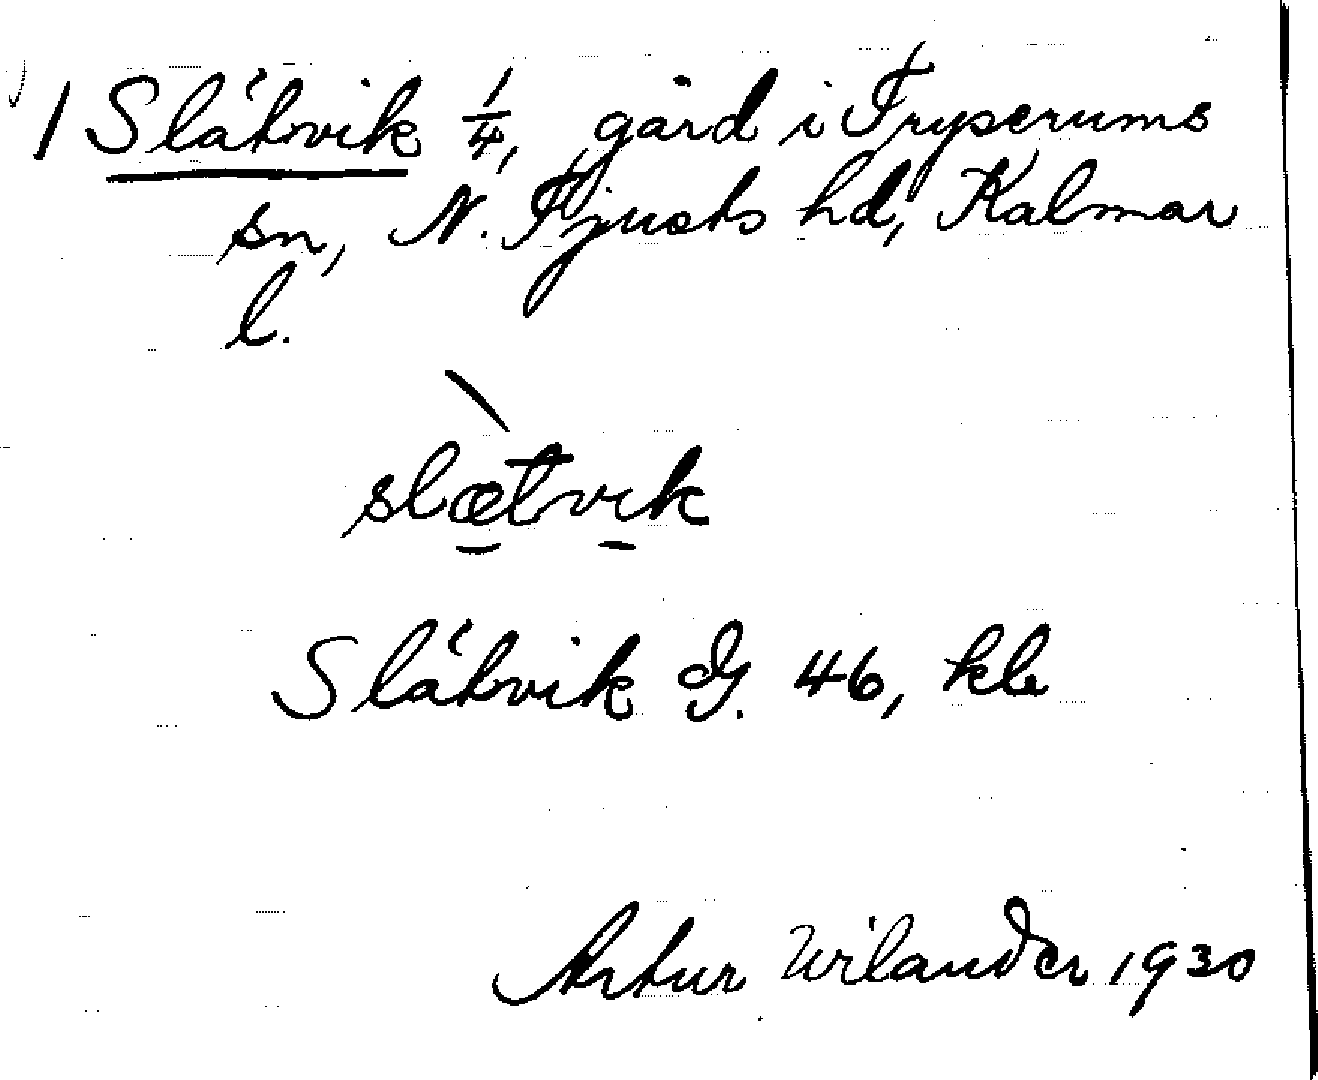 1 Slätvik 1/4, gård i Tryserums
sn, N. Tjusts hd, Kalmar
l.
slætvik
Slätvik G. 46, kle
Artur Wilander 1930